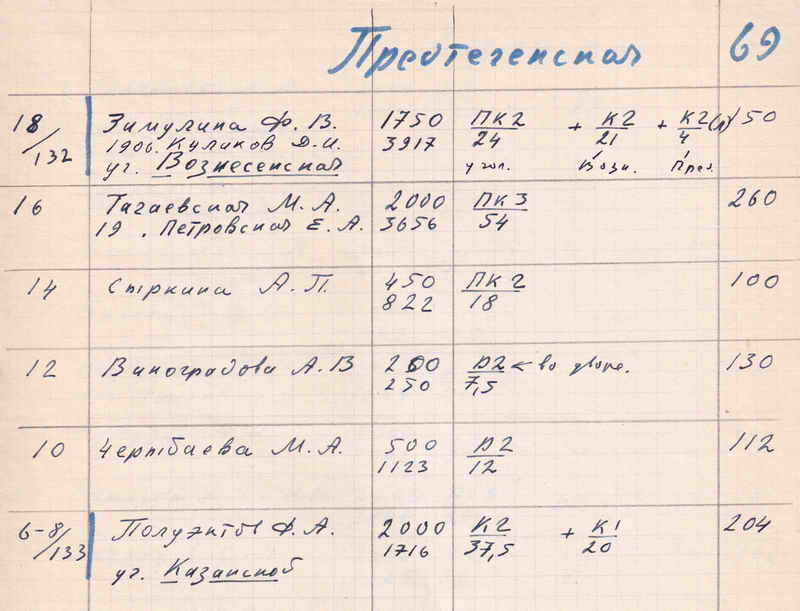 Предтеченская 69
18/132 Зимулина Ф. В. 1750 ПК2/24 + К2/21 + К2(л)/4 150
1906. Куликов Д.И. 3917
уг. Вознесенская угол. Возн. Пред.
16 Тагаевская М. А. 2000 ПК3/54 260
19 . Петровская Е. А. 3656
14 Стркина А. П. 450 ПК2/18 100
822
12 Виноградова А. В 200 Д2/7,5 ← во дворе. 130
250
10 Чертбаева М. А. 500 Д2/12 112
1123
6-8/133 Полуэктов Ф. А. 2000 К2/37,5 + К1/20 204
1716
уг. Казанской